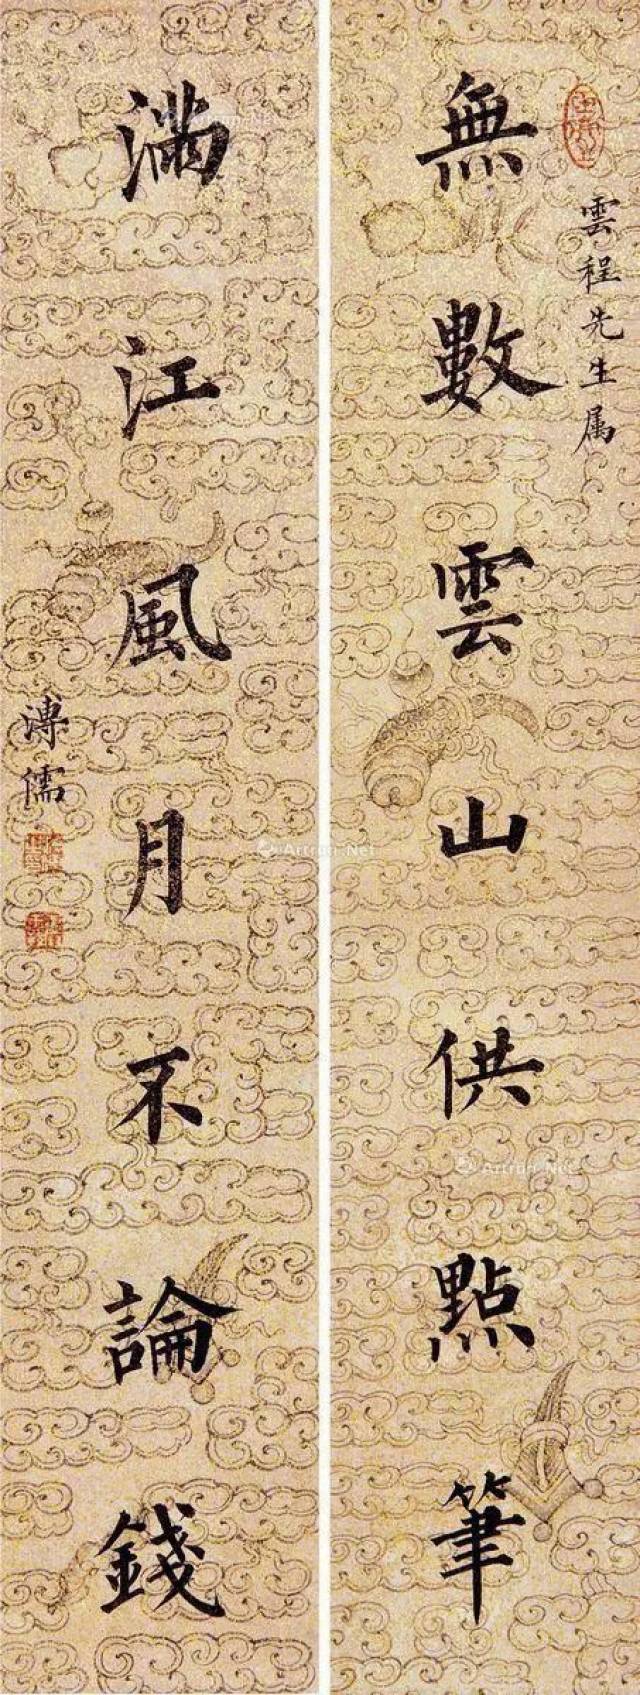 雲程先生属
無數雲山供點筆
滿江風月不論錢
溥儒
Artron.Net
Artron.Net
Artron.Net
Artron.Net